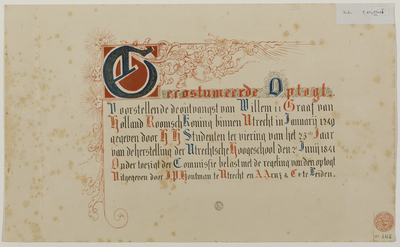 Gecostumeerde Optogt
Voorstellende de ontvangst van Willem II Graaf van
Holland Roomsch Koning binnen Utrecht in Januarij 1249
gegeven door H H Studenten ter viering van het 25ste Jaar
van de herstelling der Utrechtsche Hoogeschool den 2 Junij 1841
Onder toezigt der Commissie belast met de regeling van den optogt
Uitgegeven door J.P. Houtman te Utrecht en A. Arnz & Co te Leiden.